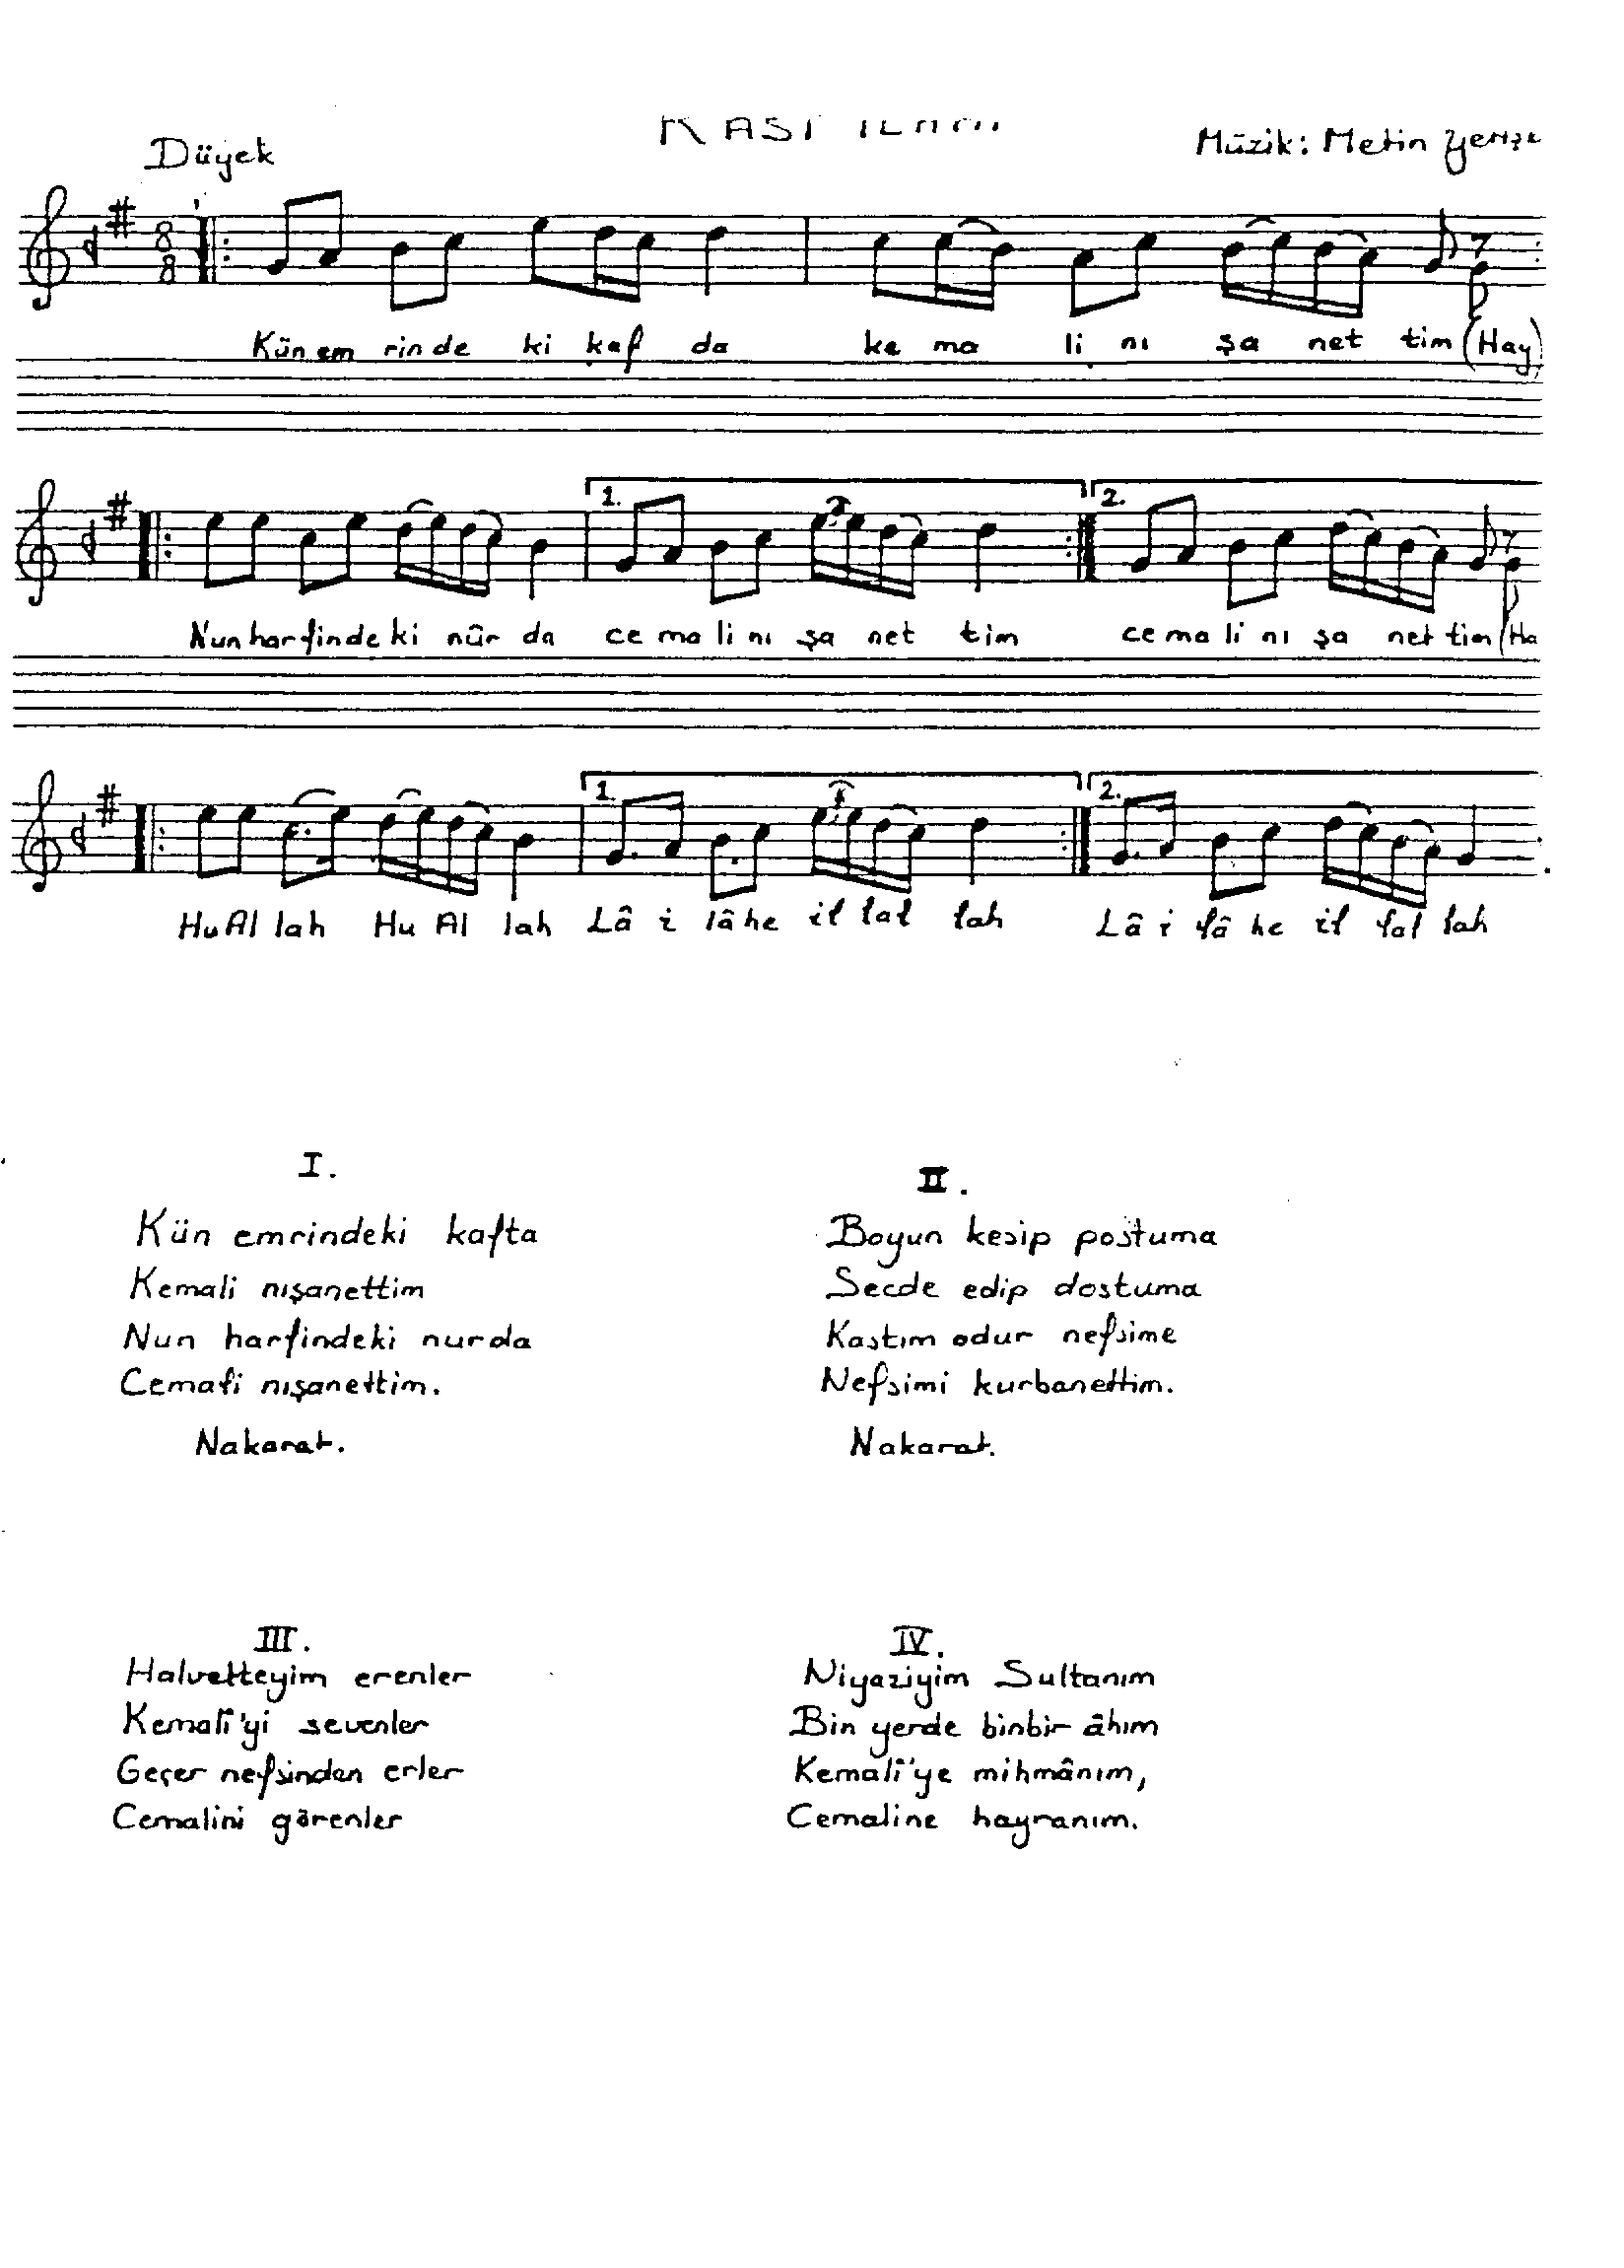 RAST İLÂHİ
Düyek
Müzik: Metin
8
8
Kün em rin de ki kaf da ke ma li nı şa net tim (Hay)
1. 2.
Nun har fin de ki nûr da ce ma li nı şa net tim ce ma li nı şa net tim (Ha
1. 2.
Hu Al lah Hu Al lah Lâ i lâ he il lal lah Lâ i lâ he il lal lah
I.
Kün emrindeki kafta
Kemali nışanettim
Nun harfindeki nurda
Cemali nışanettim.
Nakarat.
II.
Boyun kesip postuma
Secde edip dostuma
Kastım odur nefsime
Nefsimi kurbanettim.
Nakarat.
III.
Halvetteyim erenler
Kemalî'yi sevenler
Geçer nefsinden erler
Cemalini görenler
IV.
Niyaziyim Sultanım
Bin yerde binbir âhım
Kemalî'ye mihmânım,
Cemaline hayranım.